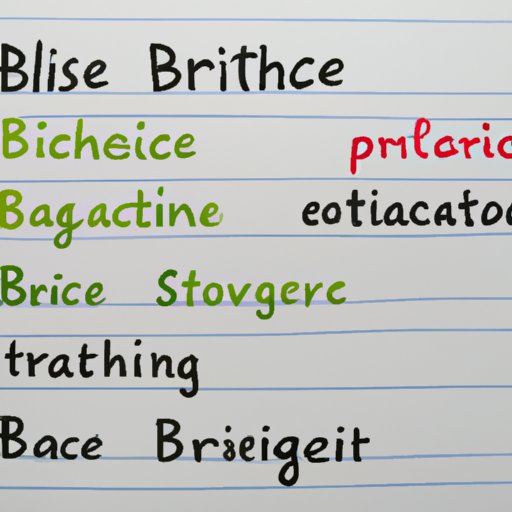 Blise Brithce
Bicheice pmlaric
Bagactine eotiacatoc
Brice Stovgerc
trathing
Bace Briseigeit